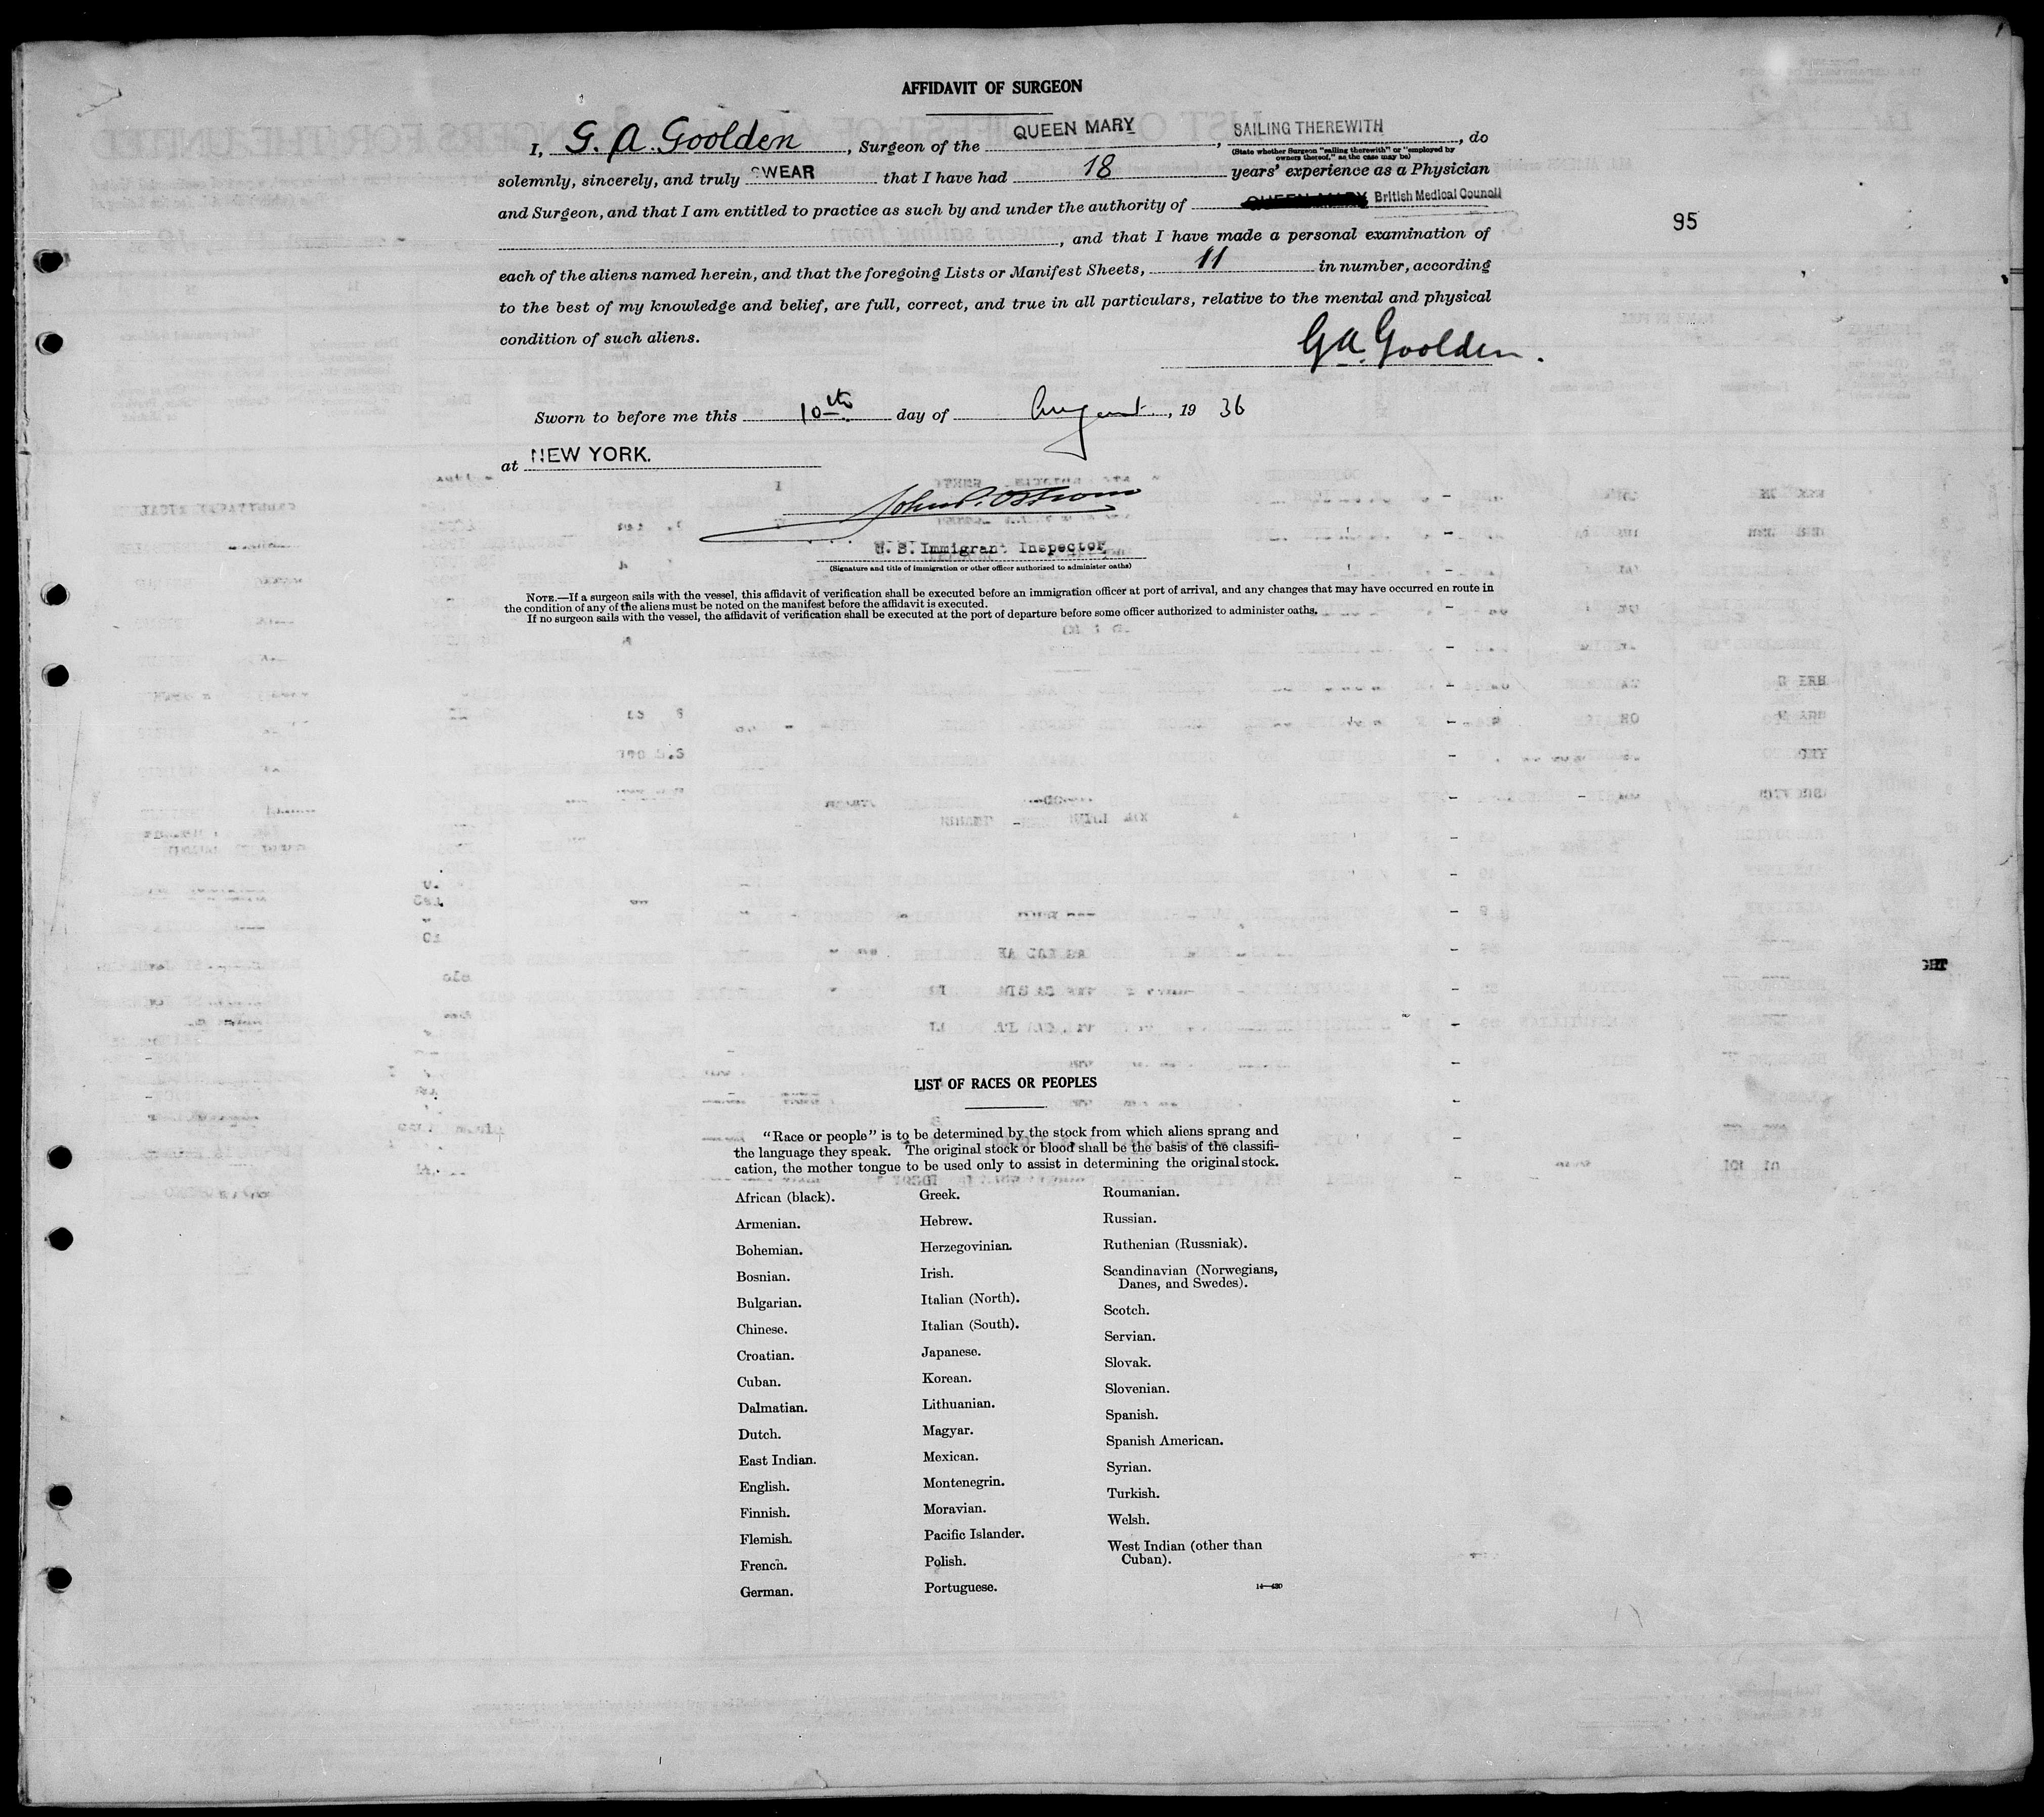 AFFIDAVIT OF SURGEON
I, G. A. Goolden, Surgeon of the QUEEN MARY, SAILING THEREWITH, do
(State whether Surgeon "sailing therewith" or "employed by
owners thereof," as the case may be)
solemnly, sincerely, and truly SWEAR that I have had 18 years' experience as a Physician
and Surgeon, and that I am entitled to practice as such by and under the authority of QUEEN MARY British Medical Council
, and that I have made a personal examination of
95
each of the aliens named herein, and that the foregoing Lists or Manifest Sheets, 11 in number, according
to the best of my knowledge and belief, are full, correct, and true in all particulars, relative to the mental and physical
condition of such aliens.
G A. Goolden.
Sworn to before me this 10th day of August, 19 36
at NEW YORK.
John P. Ostrom
U. S. Immigrant Inspector
(Signature and title of immigration or other officer authorized to administer oaths)
NOTE.—If a surgeon sails with the vessel, this affidavit of verification shall be executed before an immigration officer at port of arrival, and any changes that may have occurred en route in
the condition of any of the aliens must be noted on the manifest before the affidavit is executed.
If no surgeon sails with the vessel, the affidavit of verification shall be executed at the port of departure before some officer authorized to administer oaths.
LIST OF RACES OR PEOPLES
"Race or people" is to be determined by the stock from which aliens sprang and
the language they speak. The original stock or blood shall be the basis of the classifi-
cation, the mother tongue to be used only to assist in determining the original stock.
African (black).
Armenian.
Bohemian.
Bosnian.
Bulgarian.
Chinese.
Croatian.
Cuban.
Dalmatian.
Dutch.
East Indian.
English.
Finnish.
Flemish.
French.
German.
Greek.
Hebrew.
Herzegovinian.
Irish.
Italian (North).
Italian (South).
Japanese.
Korean.
Lithuanian.
Magyar.
Mexican.
Montenegrin.
Moravian.
Pacific Islander.
Polish.
Portuguese.
Roumanian.
Russian.
Ruthenian (Russniak).
Scandinavian (Norwegians,
Danes, and Swedes).
Scotch.
Servian.
Slovak.
Slovenian.
Spanish.
Spanish American.
Syrian.
Turkish.
Welsh.
West Indian (other than
Cuban).
14—430